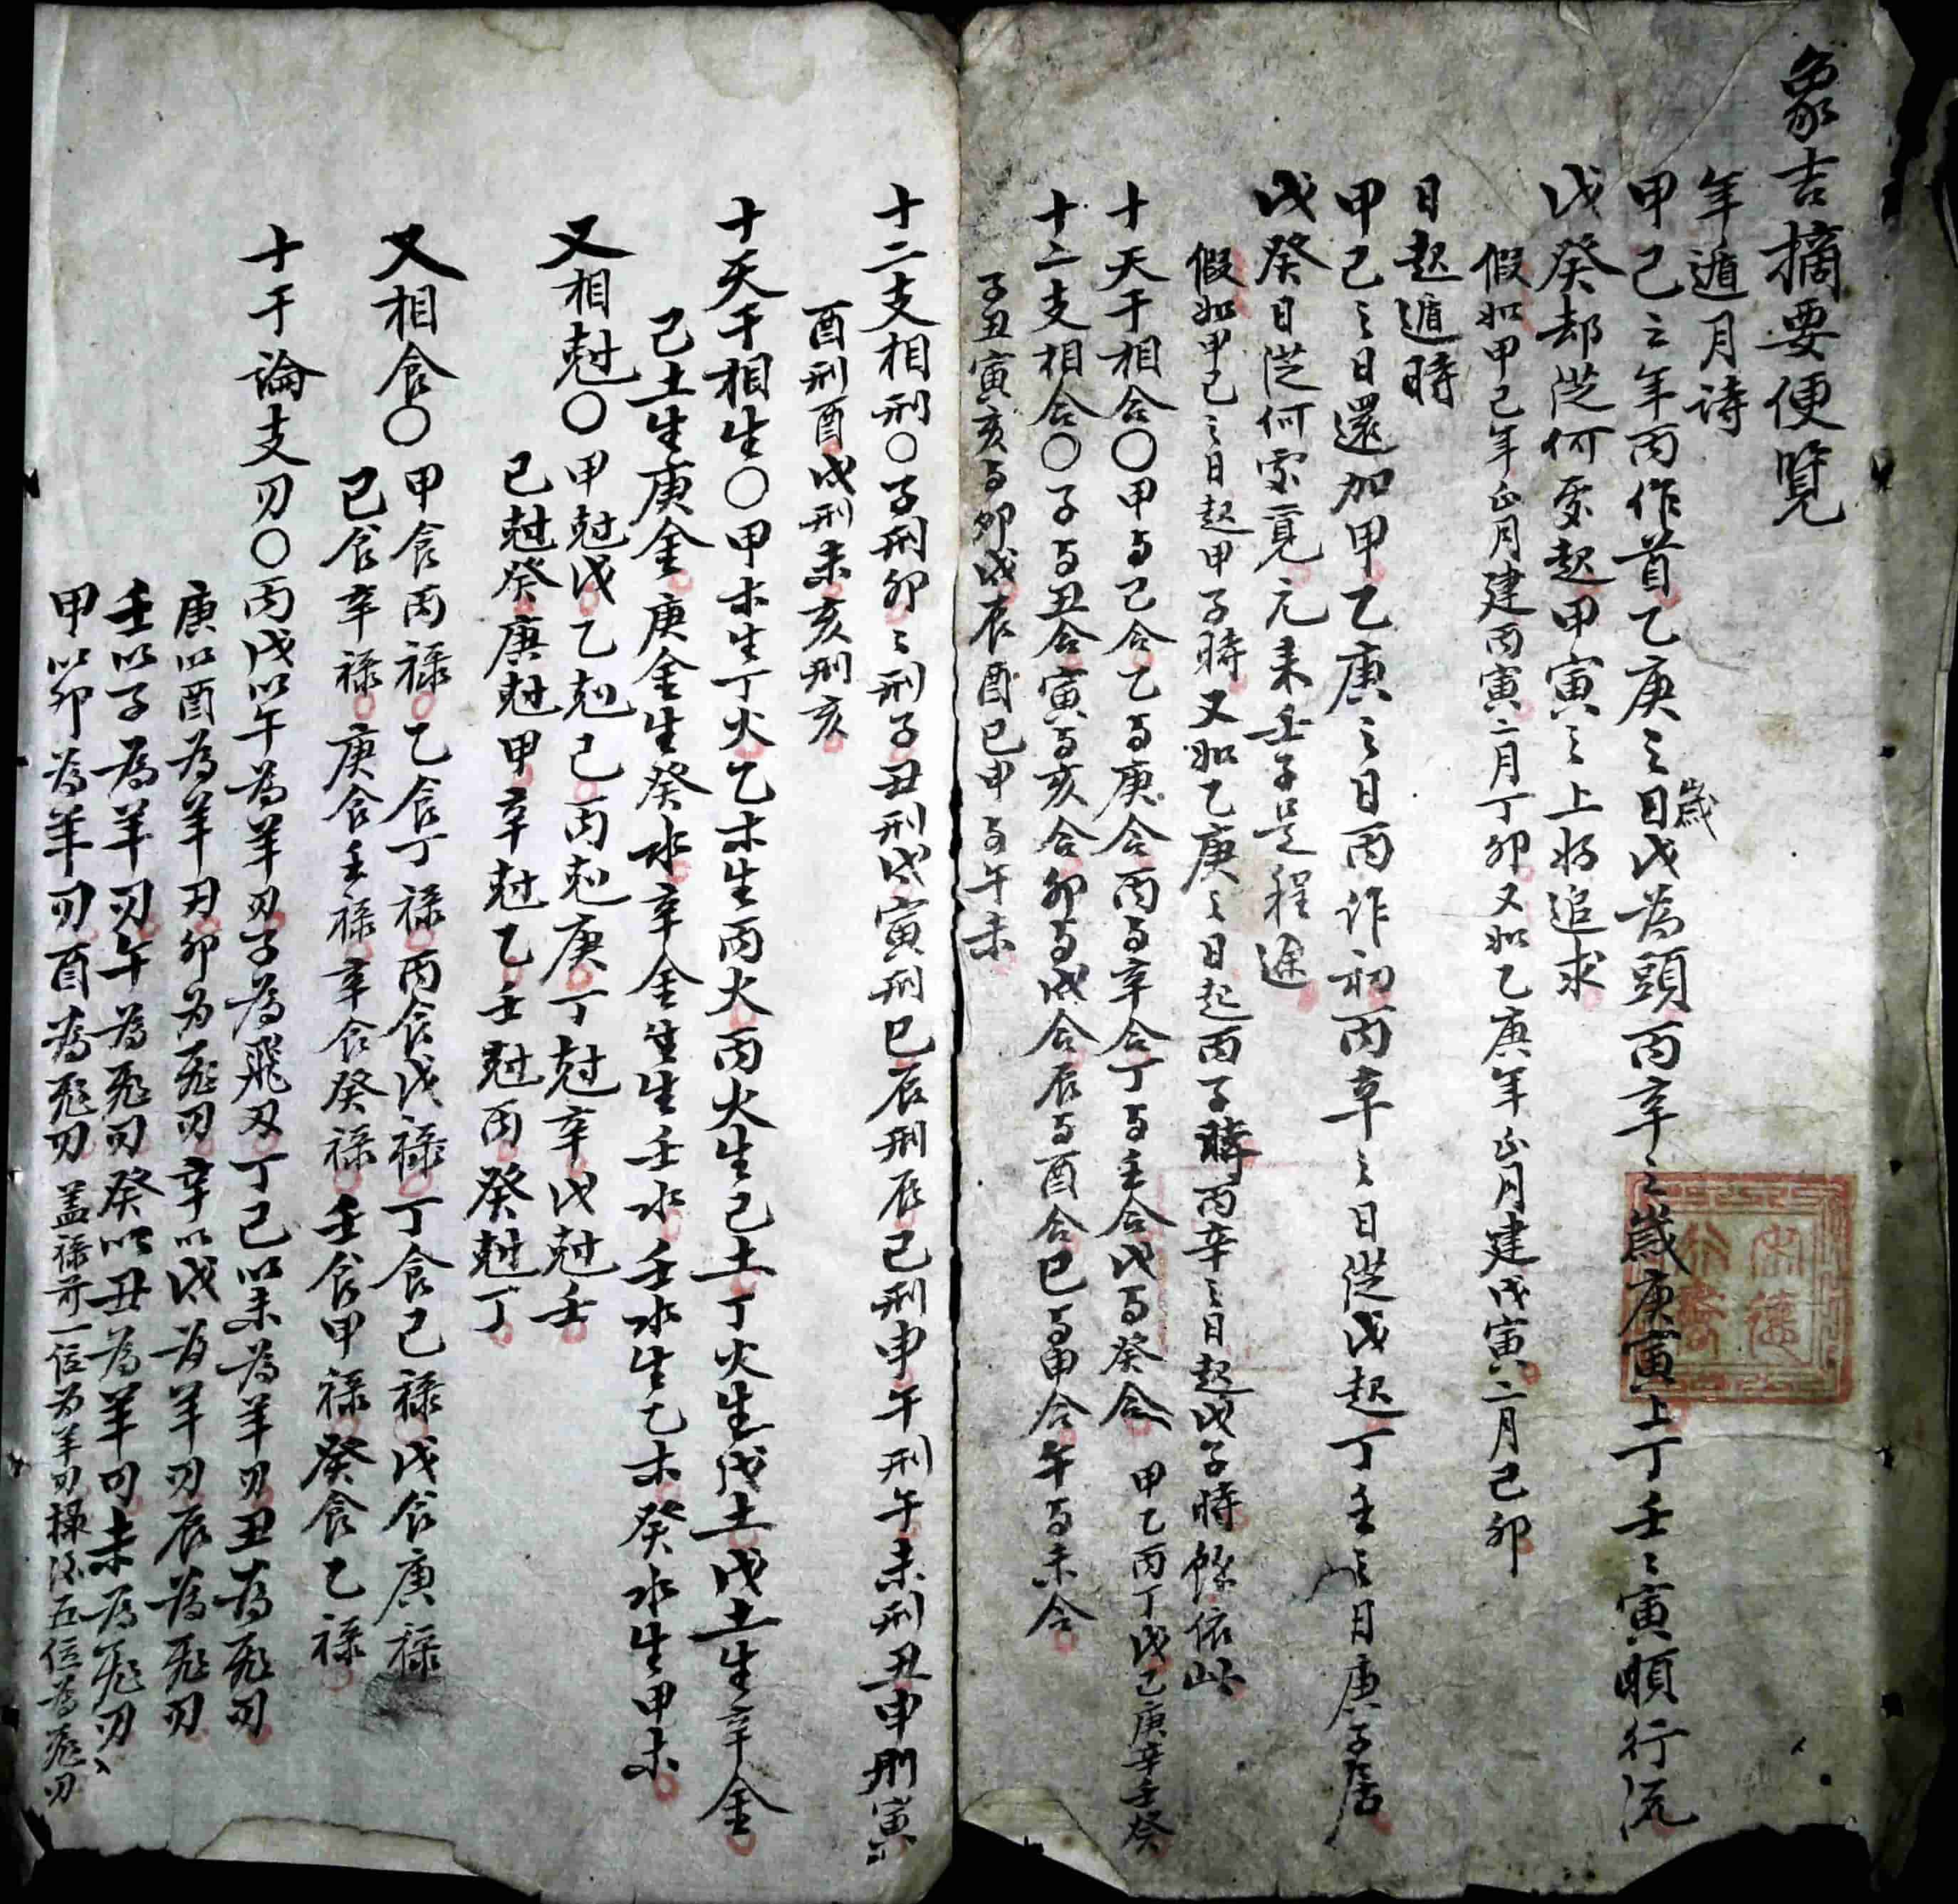 象吉摘要便覽
年遁月詩
甲己之年丙作首乙庚之日歲戊為頭丙辛之歲庚寅上丁壬壬寅順行流
戊癸却從何處起甲寅之上好追求
假如甲己年正月建丙寅二月丁卯又如乙庚年正月建戊寅二月己卯
日起遁時
甲己之日還加甲乙庚之日丙作初丙辛之日從戊起丁壬之日庚子居
戊癸日從何家覓元来壬子是程途
假如甲己之日起甲子時又如乙庚之日起丙子時丙辛之日起戊子時餘依此
十天干相合〇甲与己合乙与庚合丙与辛合丁与壬合戊与癸合 甲乙丙丁戊己庚辛壬癸
十二支相合〇子与丑合寅与亥合卯与戌合辰与酉合巳与申合午与未合
子丑寅亥与卯戌辰酉巳申与午未
十二支相刑〇子刑卯卯刑子丑刑戌寅刑巳辰刑辰巳刑申午刑午未刑丑申刑寅
酉刑酉戌刑未亥刑亥
十天干相生〇甲木生丁火乙木生丙火丙火生己土丁火生戊土戊土生辛金
己土生庚金庚金生癸水辛金生生壬水壬水生乙木癸水生甲木
又相尅〇甲尅戊乙尅己丙尅庚丁尅辛戊尅壬
己尅癸庚尅甲辛尅乙壬尅丙癸尅丁
又相食〇甲食丙禄乙食丁禄丙食戊禄丁食己禄戊食庚禄
己食辛禄庚食壬禄辛食癸禄壬食甲禄癸食乙禄
十干論支刃〇丙戊以午為羊刃子為飛刃丁己以未為羊刃丑為飛刃
庚以酉為羊刃卯为飛刃辛以戌為羊刃辰為飛刃
壬以子為羊刃午為飛刃癸以丑為羊刃未為飛刃
甲以卯為羊刃酉為飛刃盖禄前一位为羊刃五位為飛刃